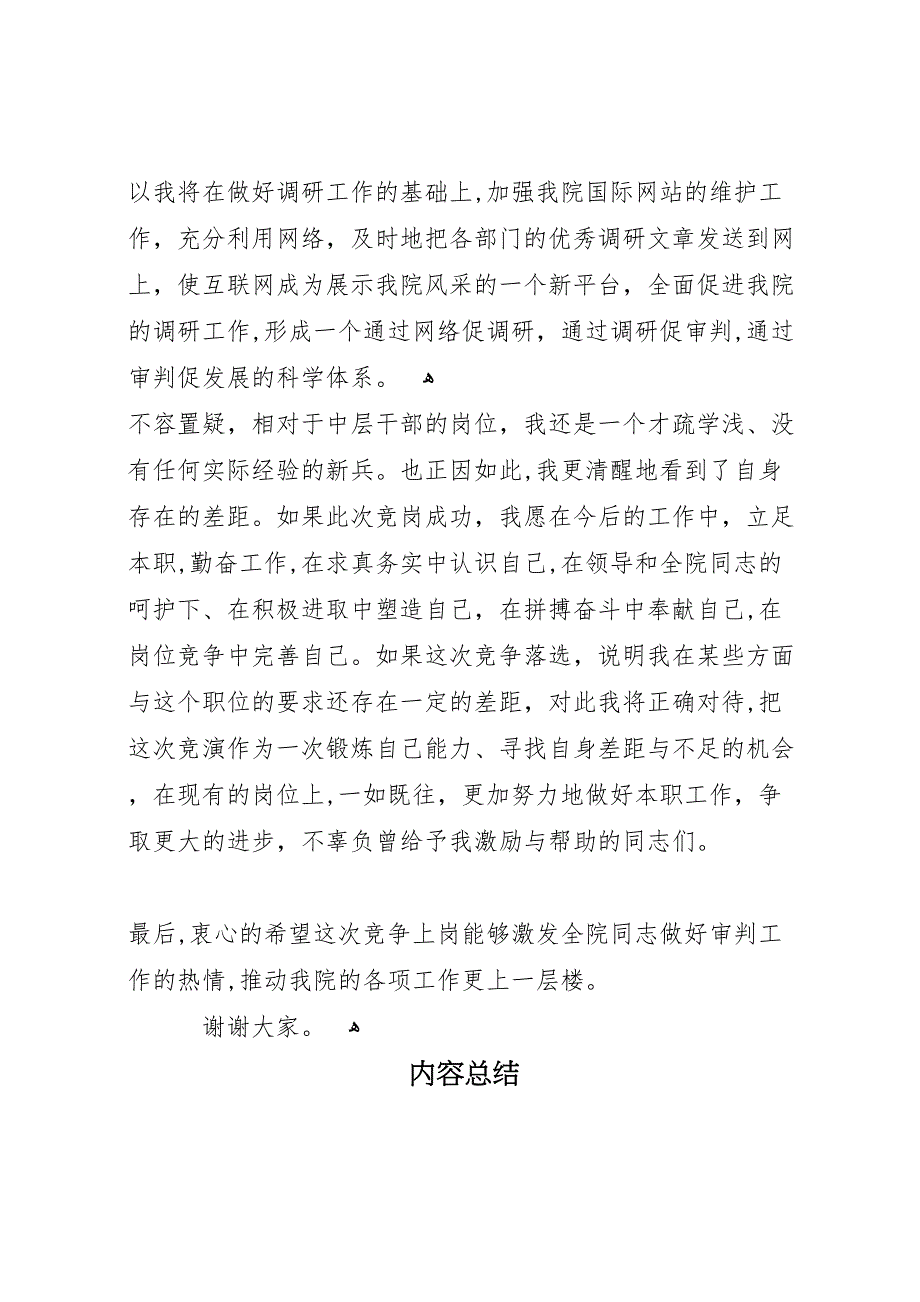 以我将在做好调研工作的基础上,加强我院国际网站的维护工
作，充分利用网络，及时地把各部门的优秀调研文章发送到网
上，使互联网成为展示我院风采的一个新平台，全面促进我院
的调研工作,形成一个通过网络促调研，通过调研促审判,通过
审判促发展的科学体系。 ﻫ
不容置疑，相对于中层干部的岗位，我还是一个才疏学浅、没
有任何实际经验的新兵。也正因如此,我更清醒地看到了自身
存在的差距。如果此次竞岗成功，我愿在今后的工作中，立足
本职,勤奋工作,在求真务实中认识自己,在领导和全院同志的
呵护下、在积极进取中塑造自己，在拼搏奋斗中奉献自己,在
岗位竞争中完善自己。如果这次竞争落选，说明我在某些方面
与这个职位的要求还存在一定的差距，对此我将正确对待,把
这次竞演作为一次锻炼自己能力、寻找自身差距与不足的机会
，在现有的岗位上,一如既往，更加努力地做好本职工作，争
取更大的进步，不辜负曾给予我激励与帮助的同志们。
最后,衷心的希望这次竞争上岗能够激发全院同志做好审判工
作的热情,推动我院的各项工作更上一层楼。
谢谢大家。 ﻫ
内容总结